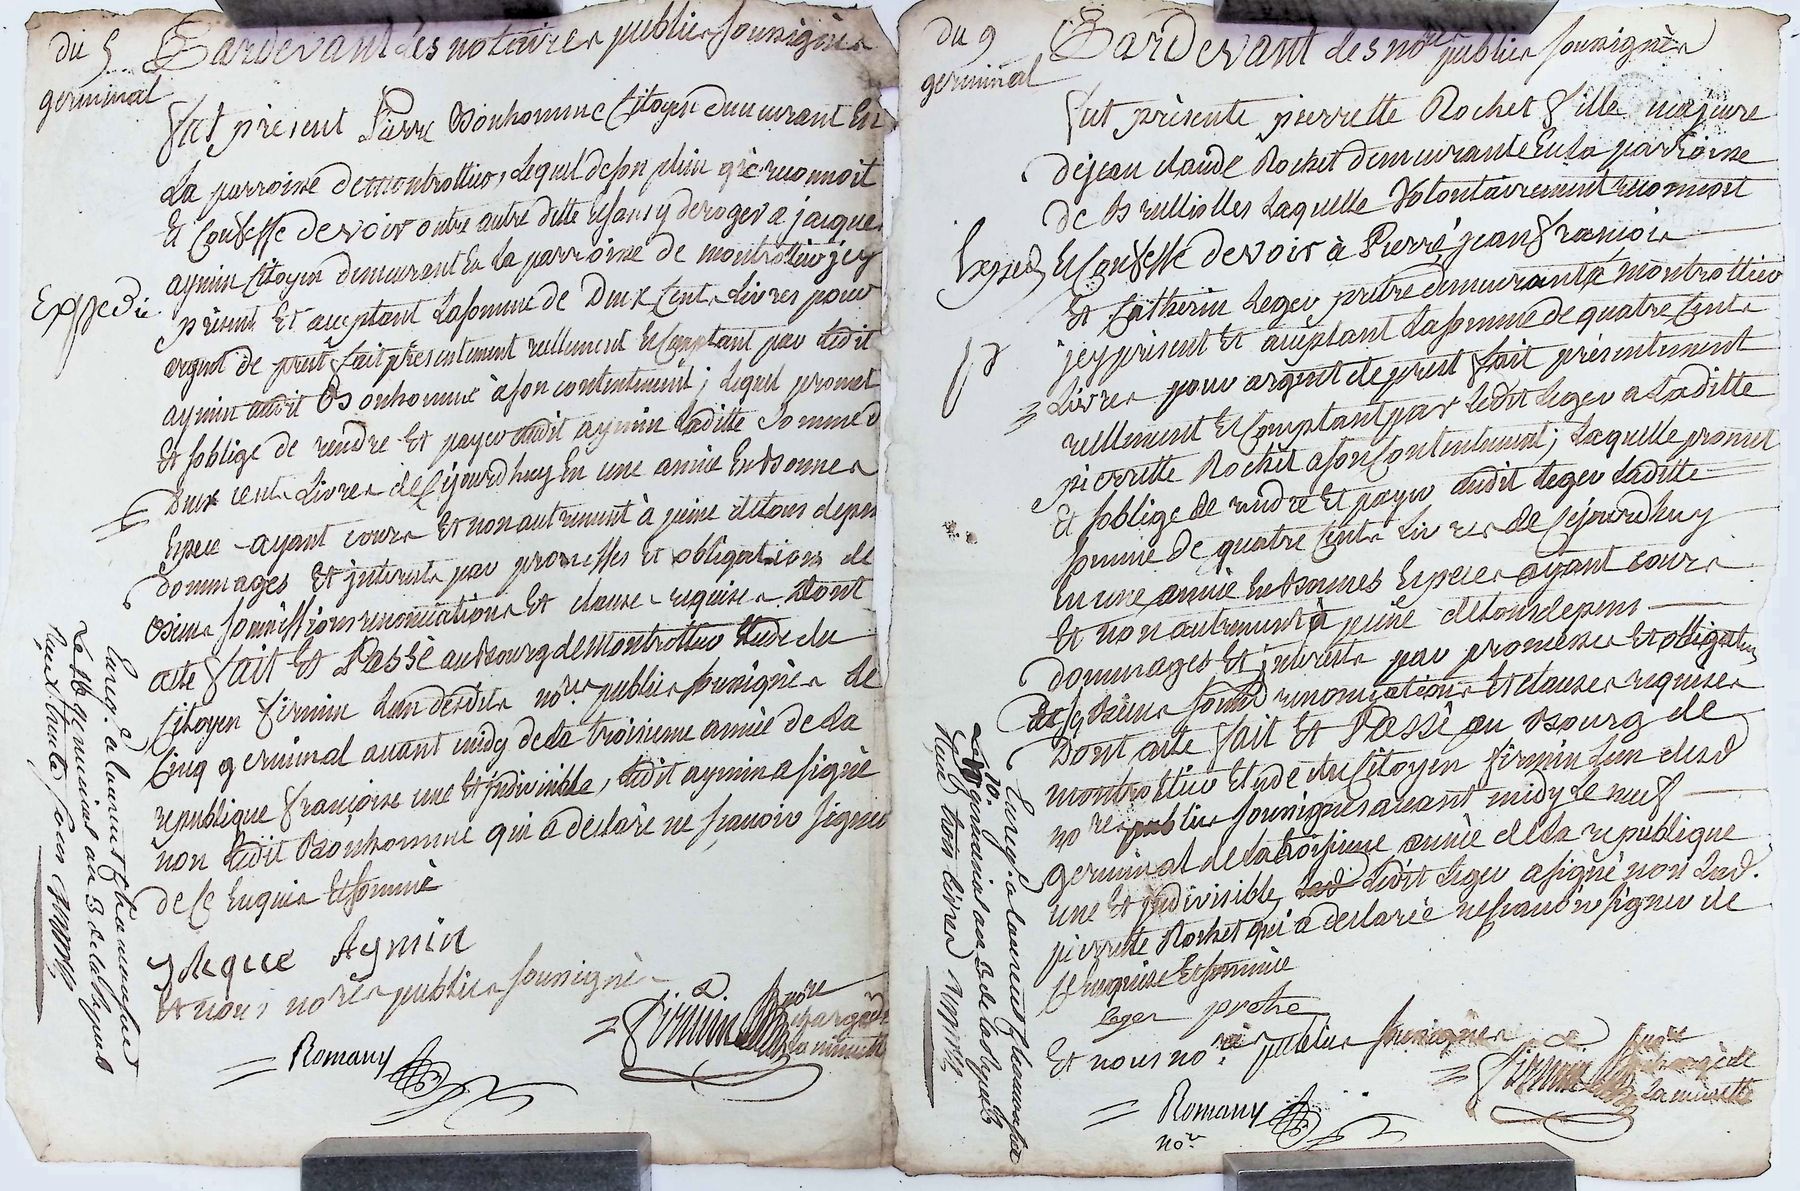 du 5
germinal
Pardevant les notaires publics soussignés
fut présent Pierre Bonhomme Citoyen demeurant en
la parroisse de montrottier, lequel de son plein gré reconnoit
Et Confesse devoir outre autre dette et sans y deroger a jacques
aymin Citoyen demeurant En la parroisse de montrottier jcy
présent Et acceptant la somme de Deux Cents Livres pour
Expedié
argent de prest fait présentement réellement Et Comptant par ledit
aymin audit Bonhomme à son contentement; lequel promet
Et s'oblige de rendre Et payer audit aymin laditte somme de
Deux cents Livres de Cejourdhuy En une année En bonnes
Espece ayant cours Et non autrement à peine de tous depens
dommages Et jnterests par promesses et obligations de
biens soumissions renonciations Et clauses requises Dont
acte fait Et Passé au Bourg de Montrottier Etude du
Citoyen firmin L'un desdits nores publics soussignés le
Cinq germinal avant midy de la troisieme année de la
republique françoise une Et jndivisible, ledit aymin a signé
non ledit Bonhomme qui a déclaré ne sçavoir signer
de Ce Enquis Et sommé
Jaque Aymin
Et nous nores publics soussignés
Romany
firmin nore
chargé de
la minutte
Enreg. a laurent
la 16 germinal an 3 de la Repub
Reçu trente sous
du 9
germinal
Pardevant les nores publics soussignés
fut présente pierrette Rochet fille majeure
de jean claude Rochet demeurante En la parroisse
de Brulliolles laquelle volontairement reconnoit
Expedié
Et Confesse devoir à Pierre jean françois
Et Catherin Leger pretre demeurant à montrottier
jcy présent Et acceptant la somme de quatre Cents
Livres pour argent de prest fait présentement
réellement Et Comptant par ledit Leger a laditte
pierrette Rochet a son Contentement; laquelle promet
Et s'oblige de rendre Et payer audit Leger laditte
somme de quatre Cents Livres de Cejourdhuy
En une année En bonnes Especes ayant cours
Et non autrement à peine de tous depens
dommages Et jnterests par promesses Et obligations
de biens soumd renonciations Et clauses requises
Dont acte fait Et Passé au Bourg de
montrottier Etude du Citoyen firmin L'un desd
nores publics soussignés avant midy le neuf
germinal de la troisieme année de la republique
une Et jndivisible, ledit Leger a signé non lad.
pierrette Rochet qui a declarée ne sçavoir signer de
Ce enquise Et sommée
Leger pretre
Et nous nores publics soussignés
Romany
nore
firmin nore
chargé de
la minutte
Enreg. a laurent
germinal an 3 de la Repub
Reçu trois livres